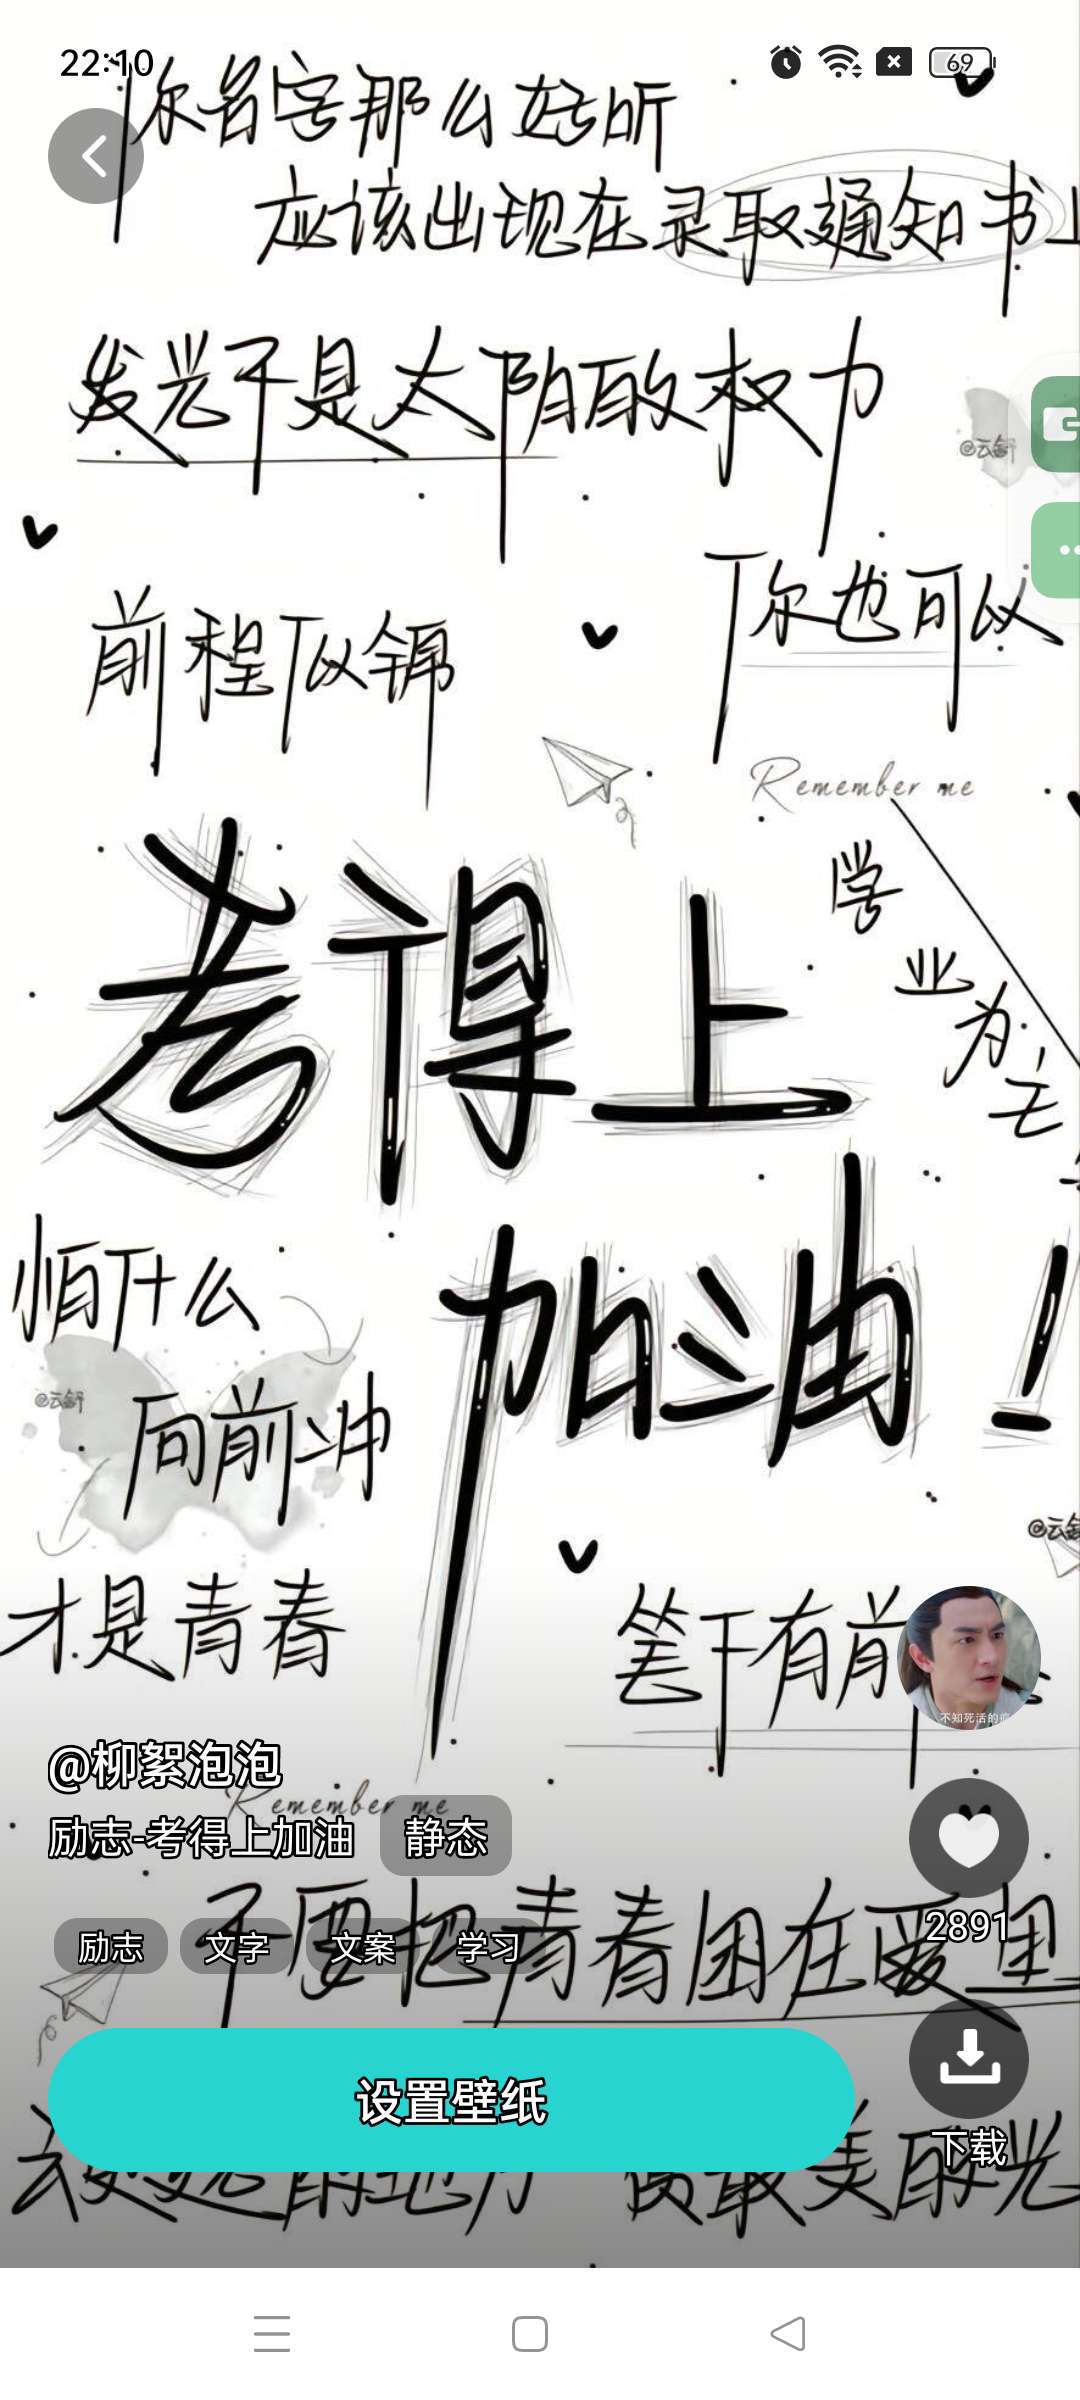 22:10
69
你名字那么好听
应该出现在录取通知书上
发光不是太阳的权力
@云舒
你也可以
前程似锦
Remember me
考得上
学业为主
加油！
怕什么
@云舒
向前冲
才是青春
笔下有前
不知死活的
@柳絮泡泡
Remember me
励志-考得上加油 静态
2891
励志 文字 文案 学习
不要把青春困在爱里
设置壁纸
下载